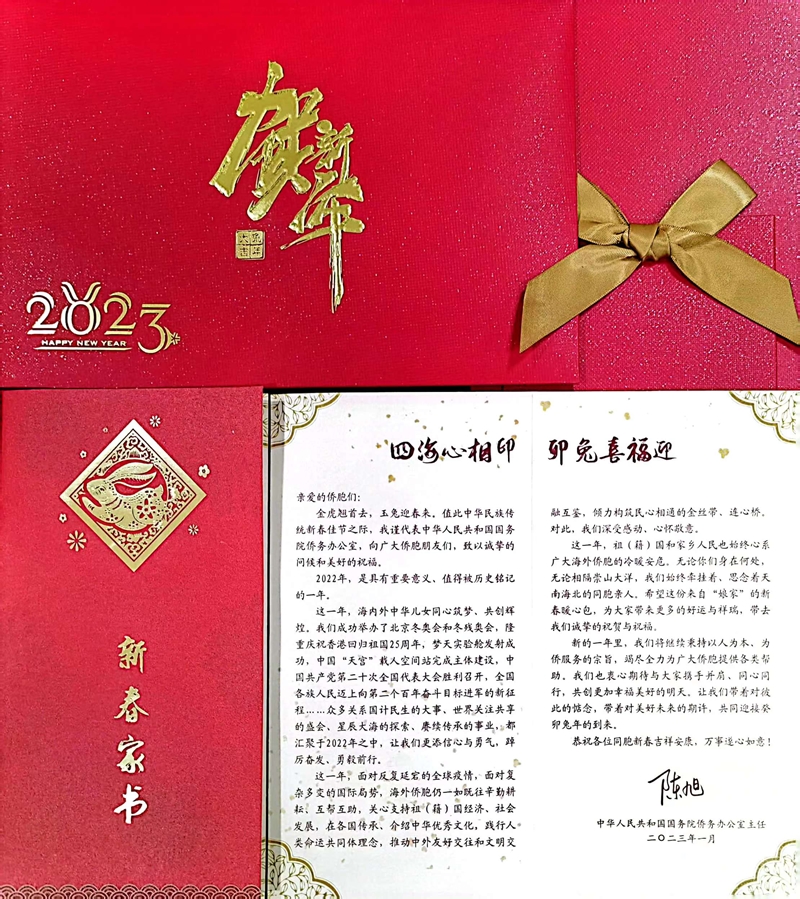 贺新年
大吉
兔年
2023
HAPPY NEW YEAR
新春家书
四海心相印 卯兔喜福迎
亲爱的侨胞们：
金虎翘首去，玉兔迎春来。值此中华民族传
统新春佳节之际，我谨代表中华人民共和国国务
院侨务办公室，向广大侨胞朋友们，致以诚挚的
问候和美好的祝福。
2022年，是具有重要意义、值得被历史铭记
的一年。
这一年，海内外中华儿女同心筑梦、共创辉
煌。我们成功举办了北京冬奥会和冬残奥会，隆
重庆祝香港回归祖国25周年，梦天实验舱发射成
功，中国“天宫”载人空间站完成主体建设，中
国共产党第二十次全国代表大会胜利召开，全国
各族人民迈上向第二个百年奋斗目标进军的新征
程……众多关国计民生的大事、世界关注共享
的盛会、星辰大海的探索、赓续传承的事业，都
汇聚于2022年之中，让我们更添信心与勇气，踔
厉奋发、勇毅前行。
这一年，面对反复延宕的全球疫情，面对复
杂多变的国际局势，海外侨胞仍一如既往辛勤耕
耘、互帮互助，关心支持祖（籍）国经济、社会
发展，在各国传承、介绍中华优秀文化，践行人
类命运共同体理念，推动中外友好交往和文明交
融互鉴，倾力构筑民心相通的金丝带、连心桥。
对此，我们深受感动、心怀敬意。
这一年，祖（籍）国和家乡人民也始终心系
广大海外侨胞的冷暖安危。无论你们身在何处，
无论相隔崇山大洋，我们始终牵挂着、思念着天
南海北的同胞亲人。希望这份来自“娘家”的新
春暖心包，为大家带来更多的好运与祥瑞，带去
我们诚挚的祝贺与祝福。
新的一年里，我们将继续秉持以人为本、为
侨服务的宗旨，竭尽全力为广大侨胞提供各类帮
助。我们也衷心期待与大家携手并肩、同心同
行，共创更加幸福美好的明天。让我们带着对彼
此的惦念，带着对美好未来的期许，共同迎接癸
卯兔年的到来。
恭祝各位同胞新春吉祥安康，万事遂心如意！
陈旭
中华人民共和国国务院侨务办公室主任
二〇二三年一月